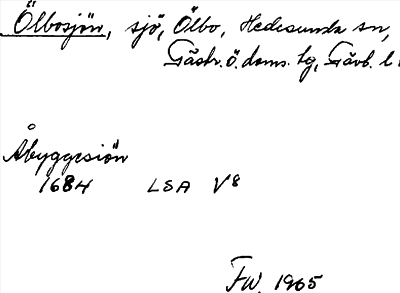 Ölbosjön, sjö, Ölbo, Hedesunda sn,
Gästr. ö. doms. tg, Gävb. l
Åbyggesiön
1684 LSA V8
FW. 1965